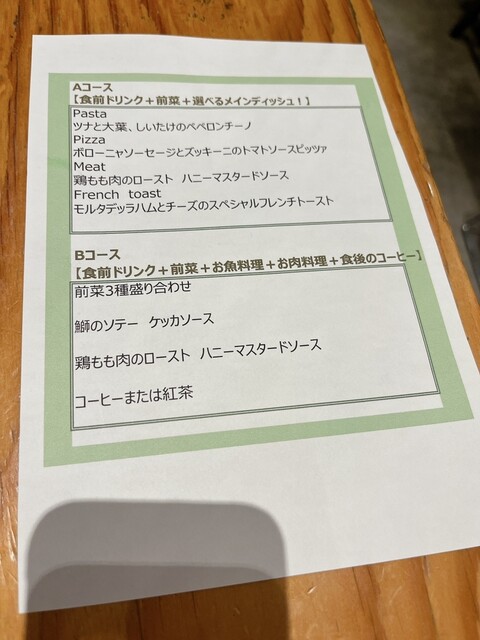 Aコース
【食前ドリンク＋前菜＋選べるメインディッシュ！】
Pasta
ツナと大葉、しいたけのペペロンチーノ
Pizza
ボローニャソーセージとズッキーニのトマトソースピッツァ
Meat
鶏もも肉のロースト ハニーマスタードソース
French toast
モルタデッラハムとチーズのスペシャルフレンチトースト
Bコース
【食前ドリンク＋前菜＋お魚料理＋お肉料理＋食後のコーヒー】
前菜3種盛り合わせ
鰤のソテー ケッカソース
鶏もも肉のロースト ハニーマスタードソース
コーヒーまたは紅茶